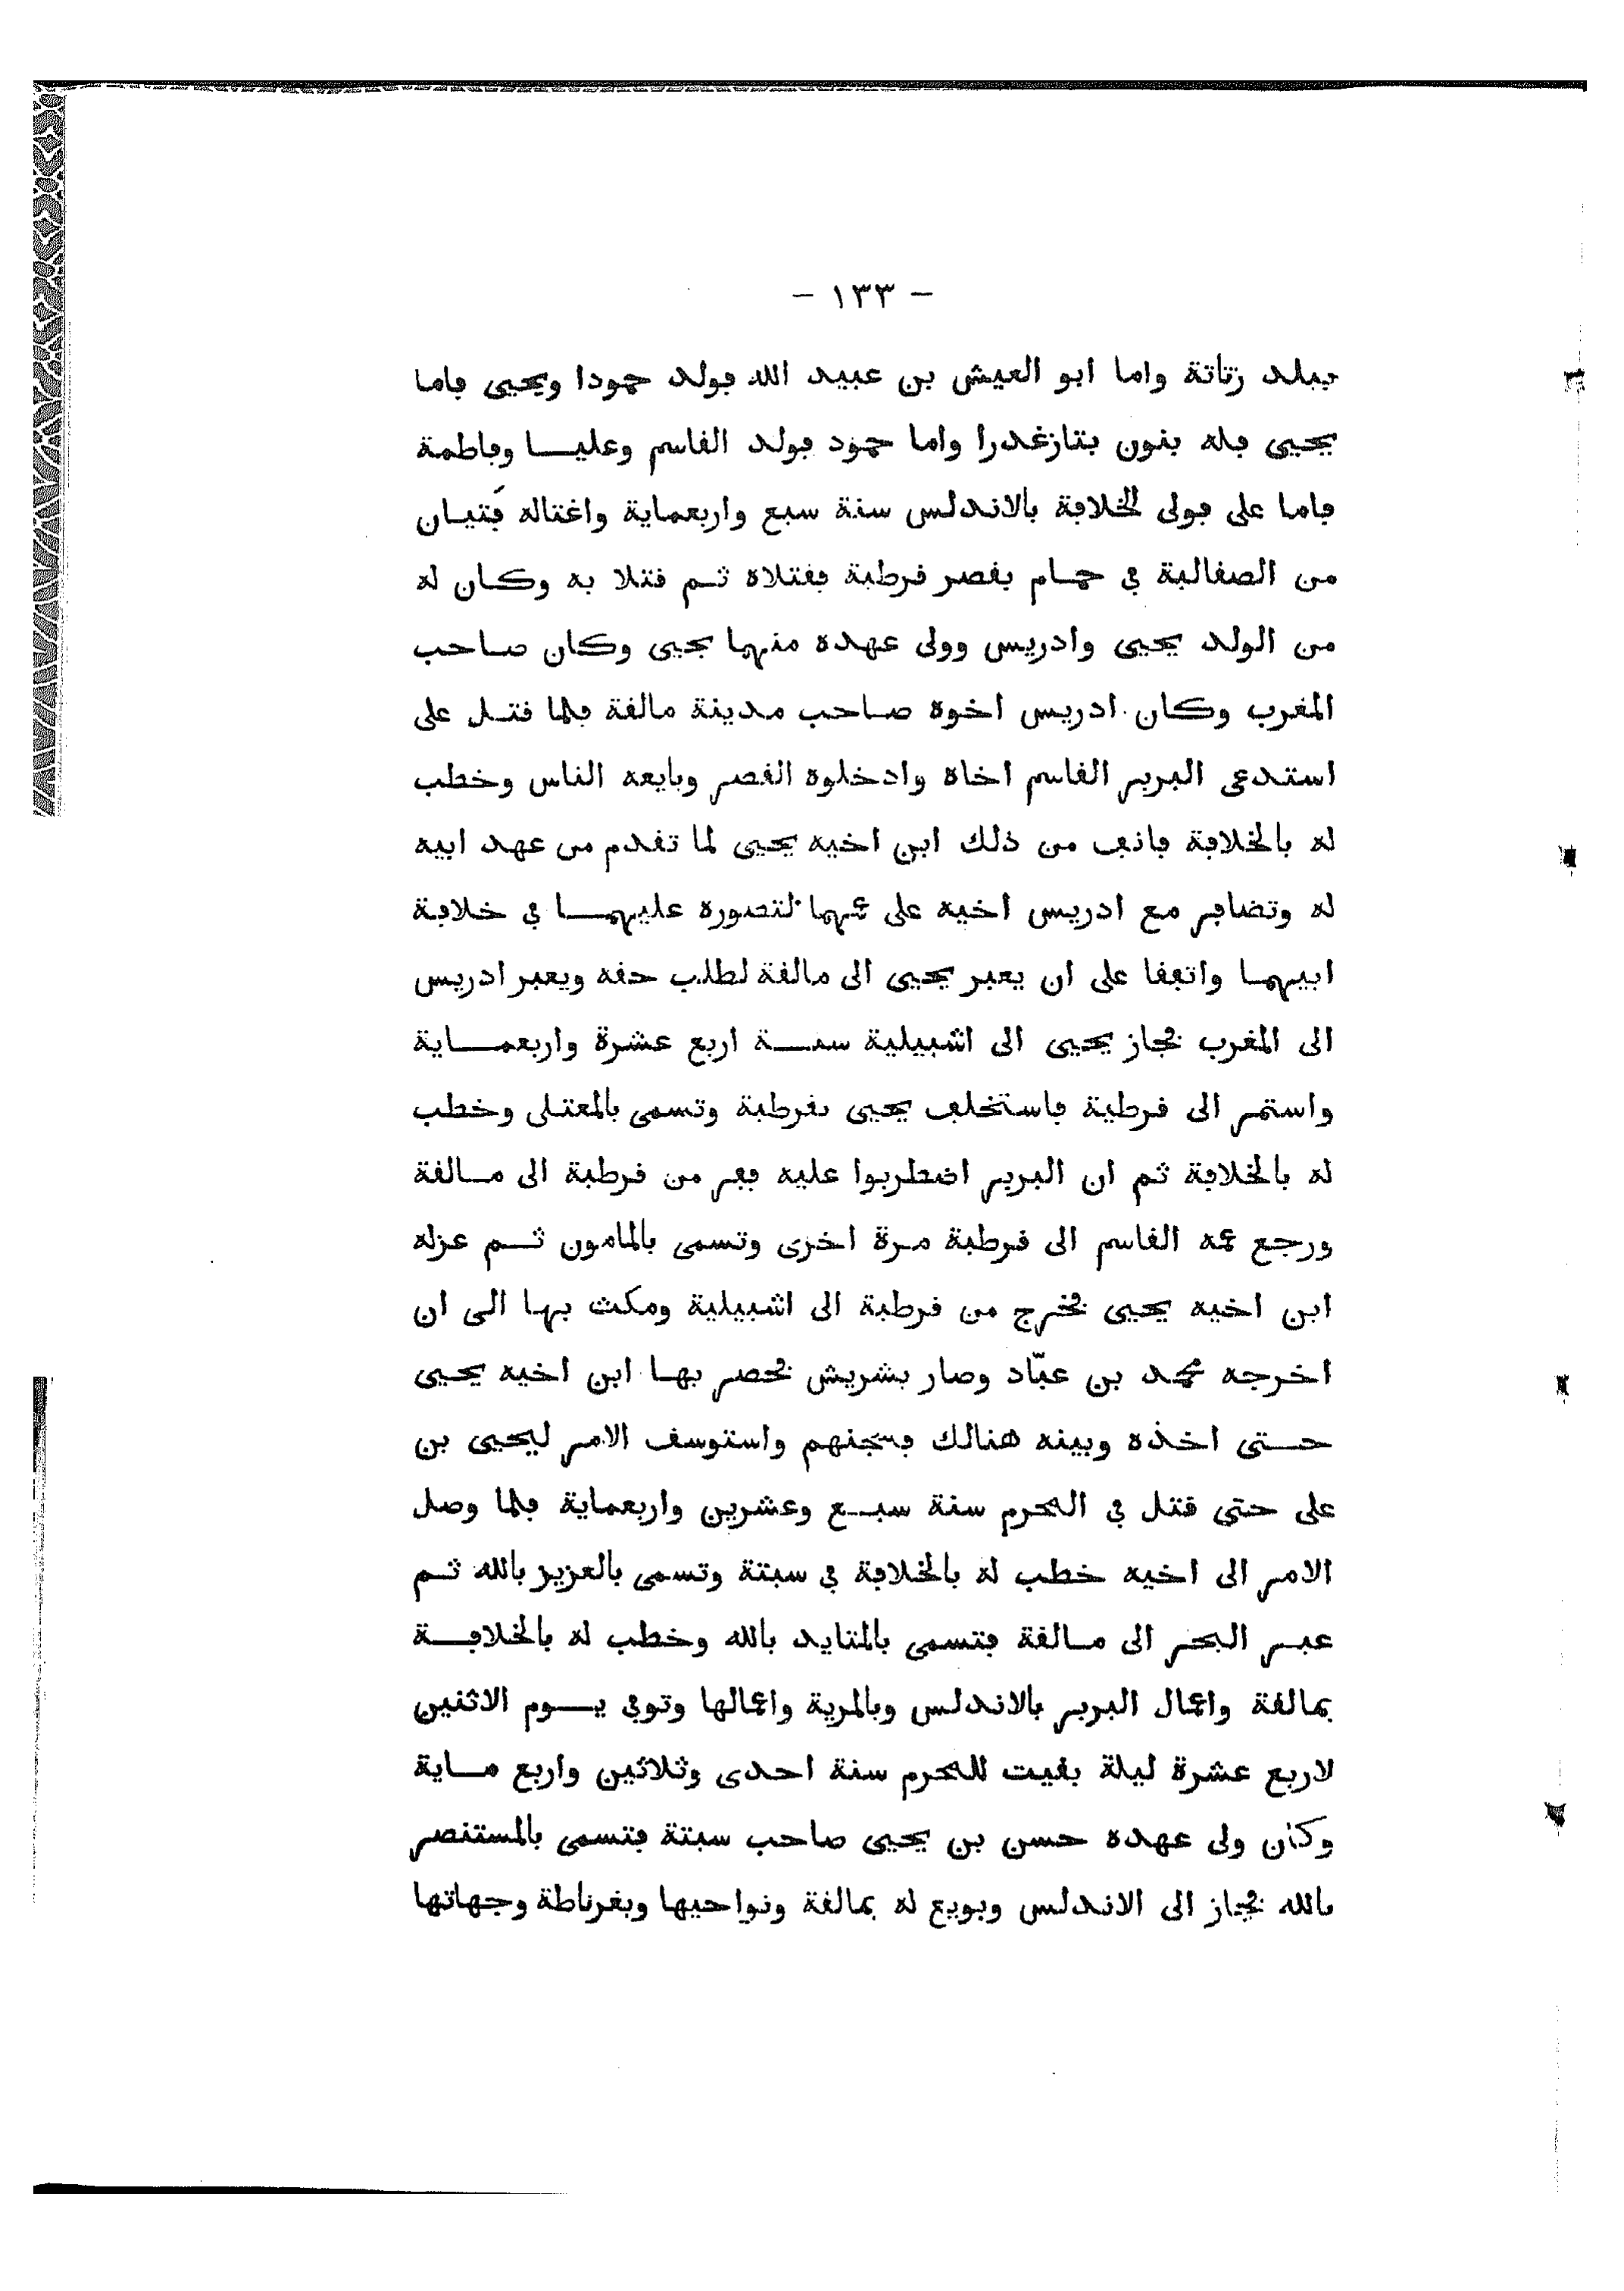 - ١٣٣ -
ببلد زناتة واما ابو العيش بن عبيد الله فولد حمودا ويحيى فاما
يحيى فله بنون بتازغدرا واما حمود فولد القاسم وعليا وفاطمة
فاما على فولى الخلافة بالاندلس سنة سبع واربعماية واغتاله فَتيان
من الصقالبة في حمام بقصر قرطبة فقتلاه ثم قتلا به وكان له
من الولد يحيى وادريس وولى عهده منهما يحيى وكان صاحب
المغرب وكان ادريس اخوه صاحب مدينة مالقة فلما قتل على
استدعى البربر القاسم اخاه وادخلوه القصر وبايعه الناس وخطب
له بالخلافة فانف من ذلك ابن اخيه يحيى لما تقدم من عهد ابيه
له وتضافر مع ادريس اخيه على عمهما لتصوره عليهما في خلافة
ابيهما واتفقا على ان يعبر يحيى الى مالقة لطلب حقه ويعبر ادريس
الى المغرب فجاز يحيى الى اشبيلية سنة اربع عشرة واربعماية
واستمر الى قرطبة فاستخلف يحيى بقرطبة وتسمى بالمعتلى وخطب
له بالخلافة ثم ان البربر اضطربوا عليه ففر من قرطبة الى مالقة
ورجع عمه القاسم الى قرطبة مرة اخرى وتسمى بالمامون ثم عزله
ابن اخيه يحيى فخرج من قرطبة الى اشبيلية ومكث بها الى ان
اخرجه محمد بن عبّاد وصار بشريش فحصر بها ابن اخيه يحيى
حتى اخذه وبينه هنالك فسجنهم واستوسق الامر ليحيى بن
على حتى قتل في المحرم سنة سبع وعشرين واربعماية فلما وصل
الامر الى اخيه خطب له بالخلافة في سبتة وتسمى بالعزيز بالله ثم
عبر البحر الى مالقة فتسمى بالمتايد بالله وخطب له بالخلافة
بمالقة واعمال البربر بالاندلس وبالمرية واعمالها وتوفى يوم الاثنين
لاربع عشرة ليلة بقيت للمحرم سنة احدى وثلاثين واربع ماية
وكان ولى عهده حسن بن يحيى صاحب سبتة فتسمى بالمستنصر
بالله فجاز الى الاندلس وبويع له بمالقة ونواحيها وبغرناطة وجهاتها